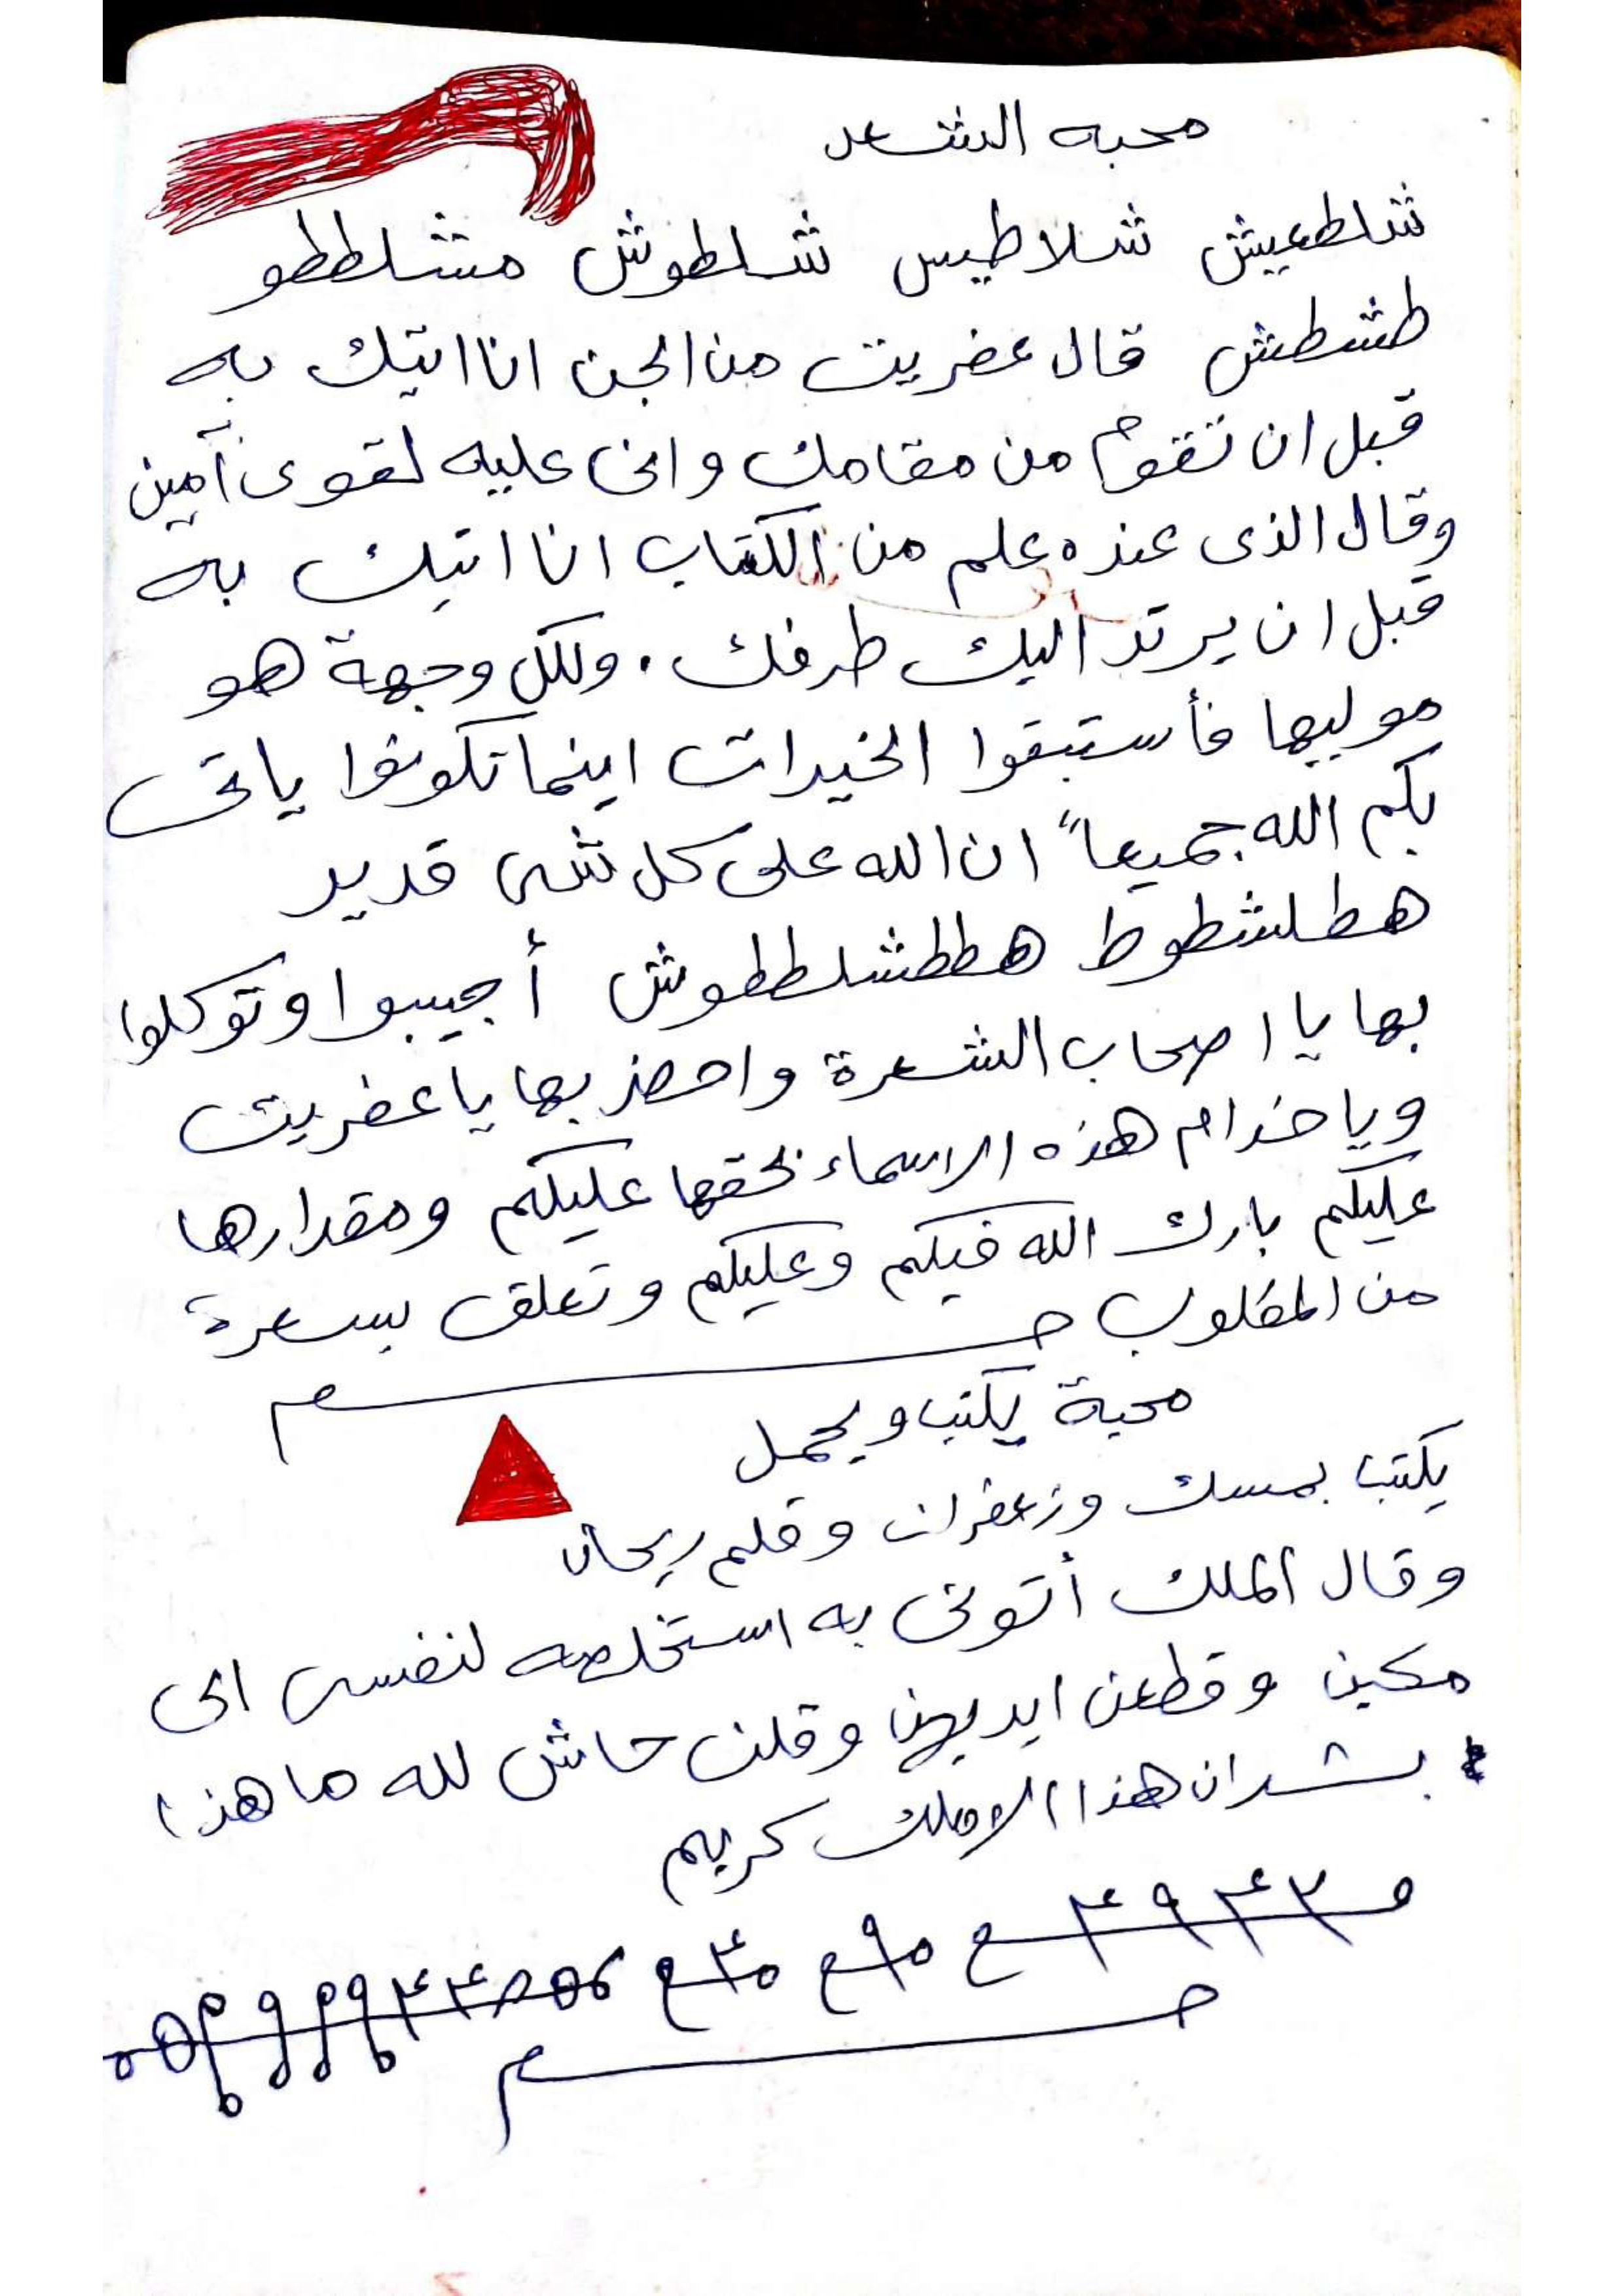 محبه الشعر
شلطعيش شلاطيس شلطوش مشلططو
طشطش قال عفريت من الجن انا اتيك به
قبل ان تقوم من مقامك وانى عليه لقوى آمين
وقال الذى عنده علم من الكتاب انا اتيك به
قبل ان يرتد اليك طرفك . ولكل وجهة هو
موليها فأستبقوا الخيرات اينما تكونوا ياتى
بكم الله جميعاً ان الله على كل شى قدير
هطلشطوط هططشلططوش أجيبوا وتوكلوا
بها يا اصحاب الشعرة واحضر بها يا عفريت
ويا خدام هذه الاسماء بحقها عليكم ومقدارها
عليكم بارك الله فيكم وعليكم وتعلق بسعرة
من المطلوب
محبة يكتب ويحمل
يكتب بمسك وزعفران وقلم ريحان
وقال الملك أتونى به استخلصه لنفسى
مكين وقطعن ايديهن وقلن حاش لله ما هذا
بشر ان هذا الا ملك كريم